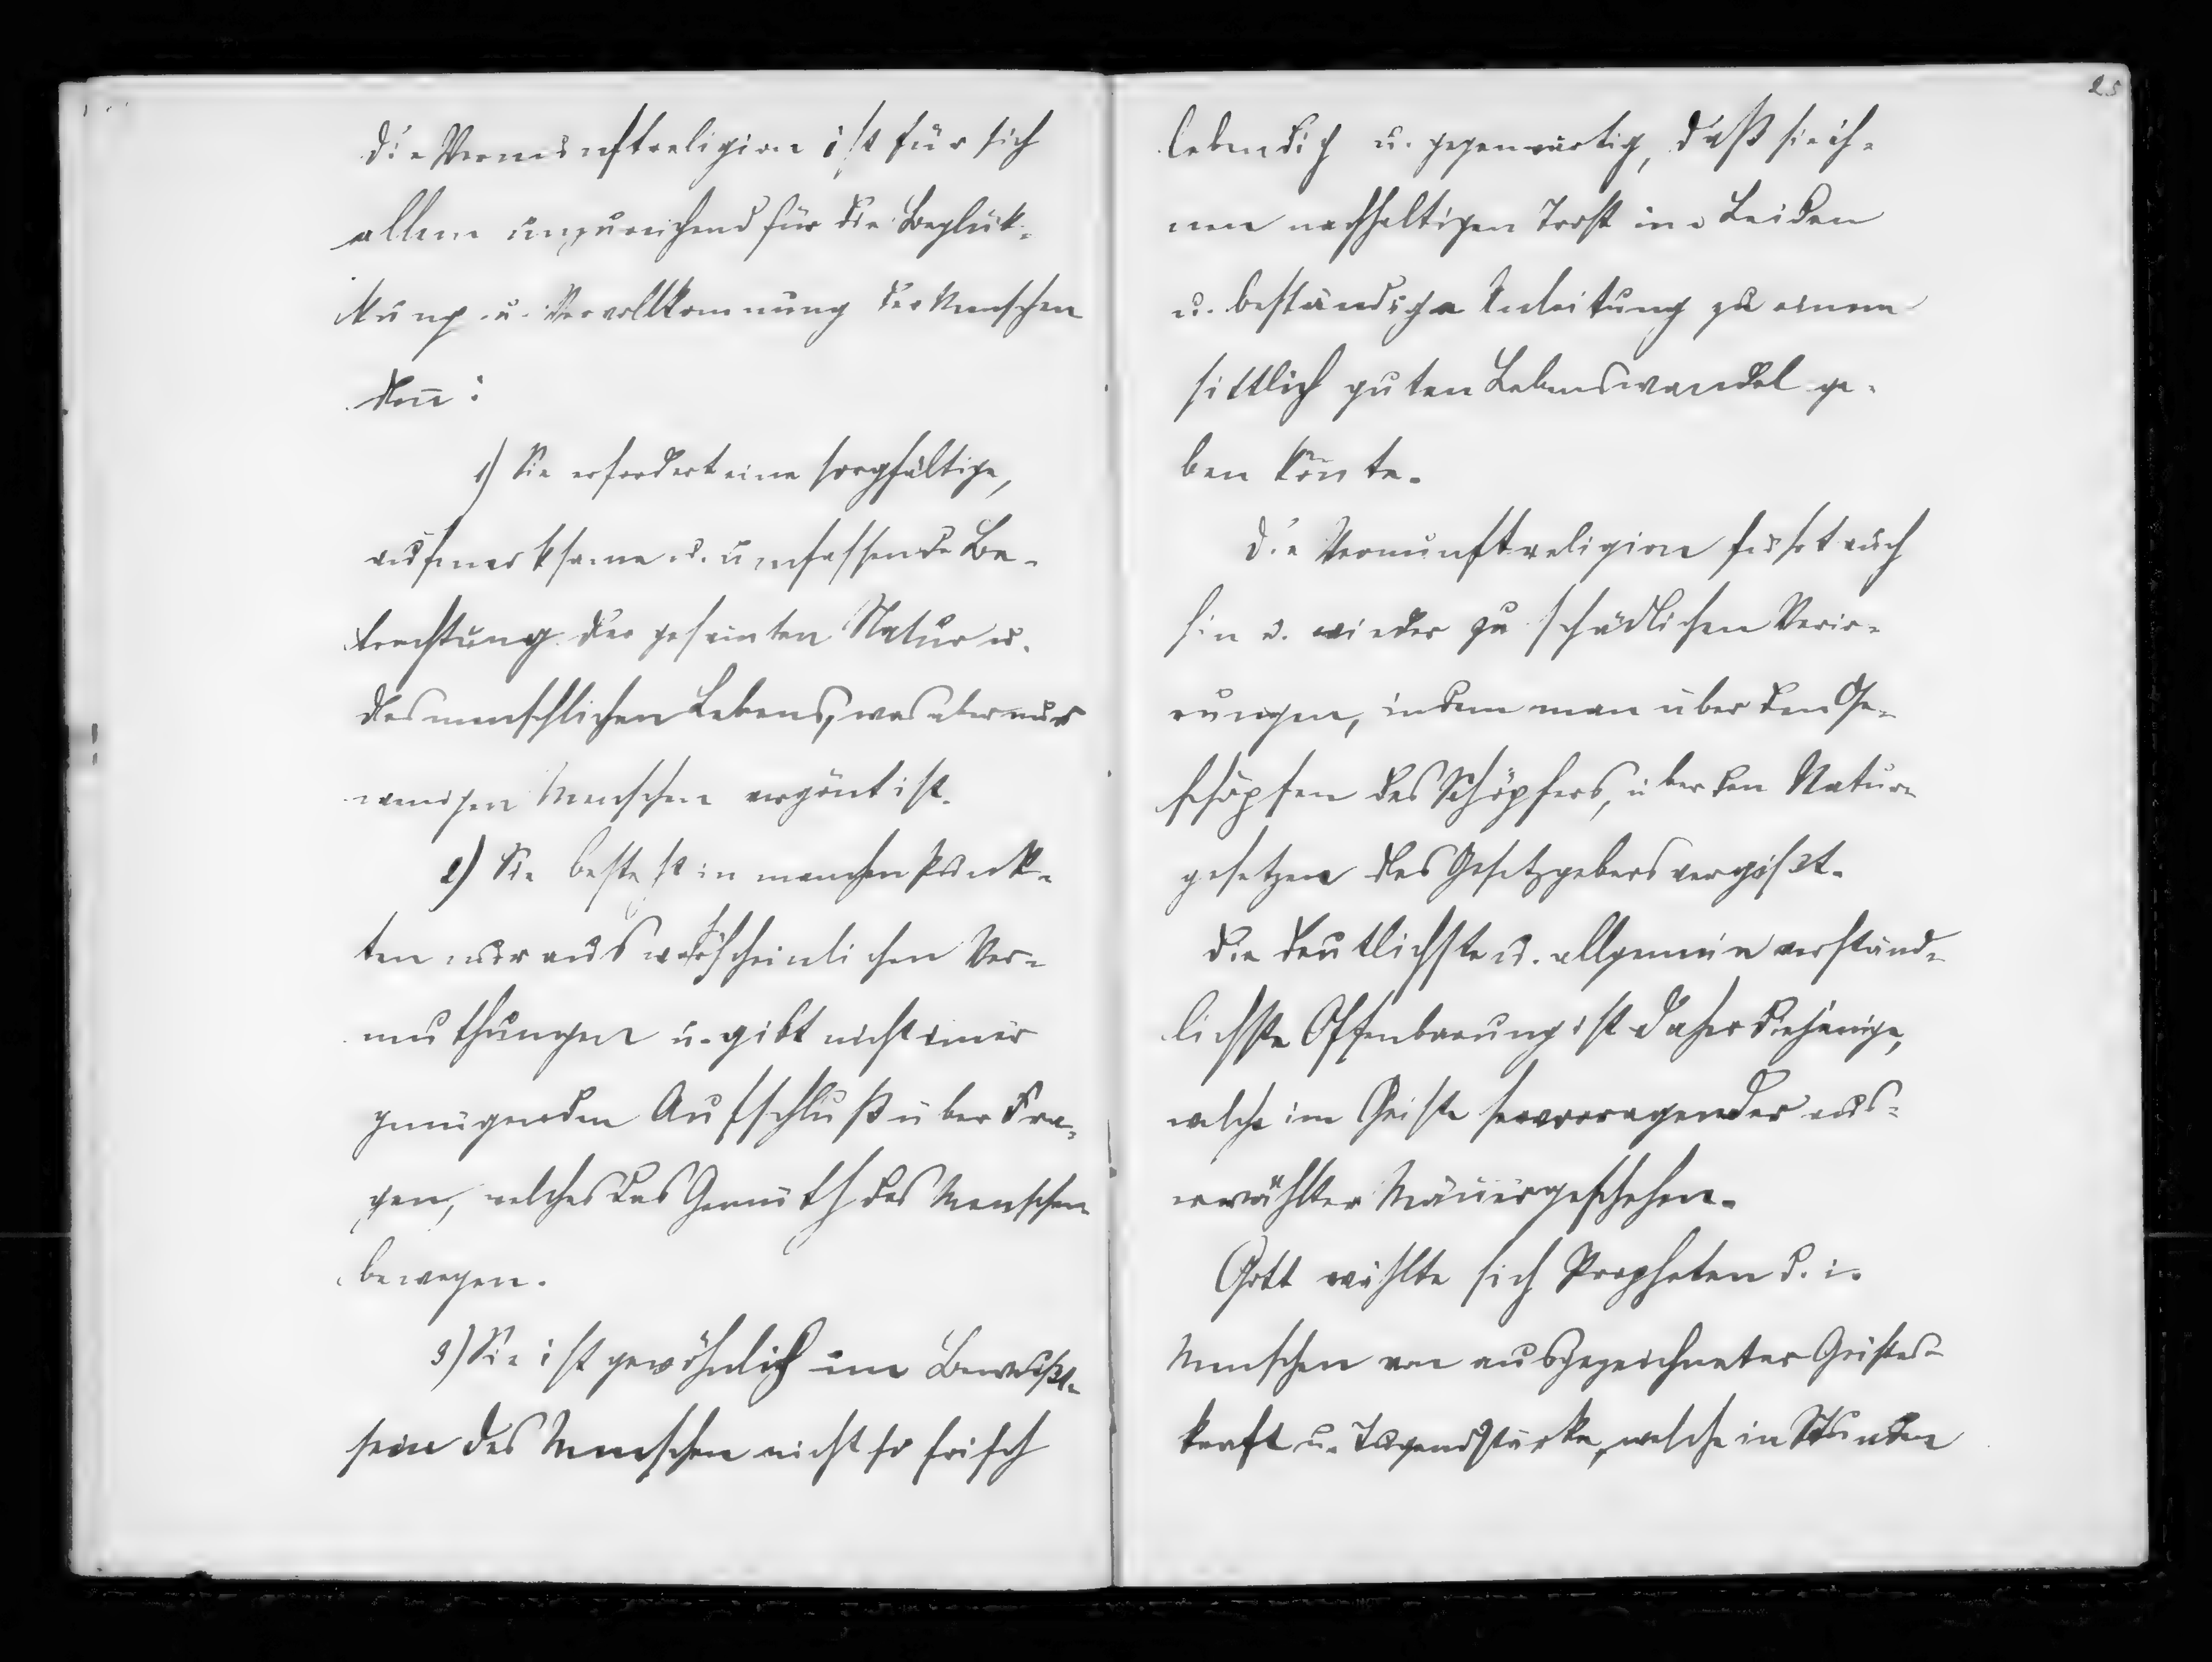 die Vernunftreligion ist für sich
allein unzureichend für die Beglük-
kung u. Vervollkomnung der Menschen
den̅:
1) Sie erfordert eine sorgfältige,
aufmerksame u. umfassende Be-
trachtung der gesam̅ten Natur u.
des menschlichen Lebens, was aber nur
wenigen Menschen vergön̅t ist.
2) Sie besteht in manchen Punk-
ten nur aus wahrscheinlichen Ver-
muthungen u. gibt nicht im̅er
genügenden Aufschluß über Fra-
gen, welches das Gemüth des Menschen
bewegen.
3) Sie ist gewöhnlich im Bewußt-
sein des Menschen nicht so frisch
25
lebendig u. gegenwärtig, daß sie ih-
nen nachhaltigen Trost in Leiden
u. beständige Anleitung zu einem
sittlich guten Lebenswandel ge-
ben kön̅te.
Die Vernunftreligion führt auch
hin u. wieder zu schädlichen Verir-
rungen, indem man über den Ge-
schöpfen des Schöpfers, über den Natur-
gesetzen des Gesetzgebers vergißt.
Die deutlichste u. allgemein verständ-
lichste Offenbarung ist daher diejenige,
welche im Geiste hervorragender aus-
erwählter Män̅er geschehen.
Gott wählte sich Propheten d. i.
Menschen von ausgezeichneter Geistes-
kraft u. Tugendstärke, welche in Stunden